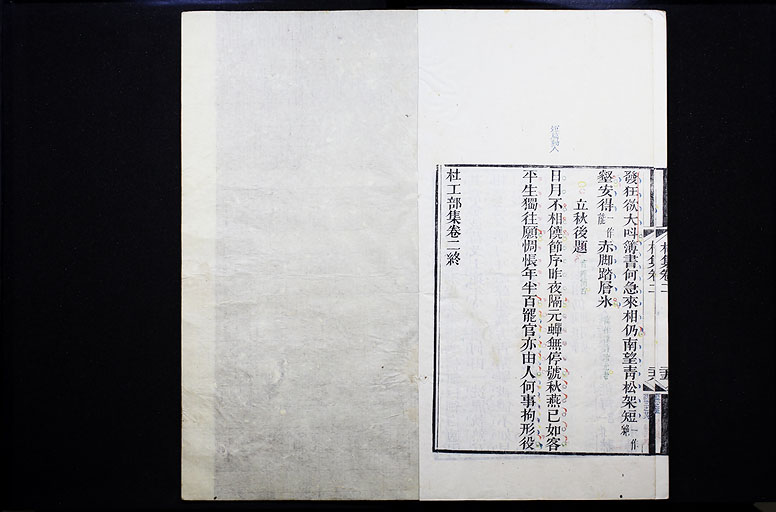 發狂欲大叫簿書何急來相仍南望青松架短一作
壑安得一作能赤脚踏層冰
立秋後題
日月不相饒節序昨夜隔元蟬無停號秋燕已如客
平生獨往願惆悵年半百罷官亦由人何事拘形役
杜工部集卷二終